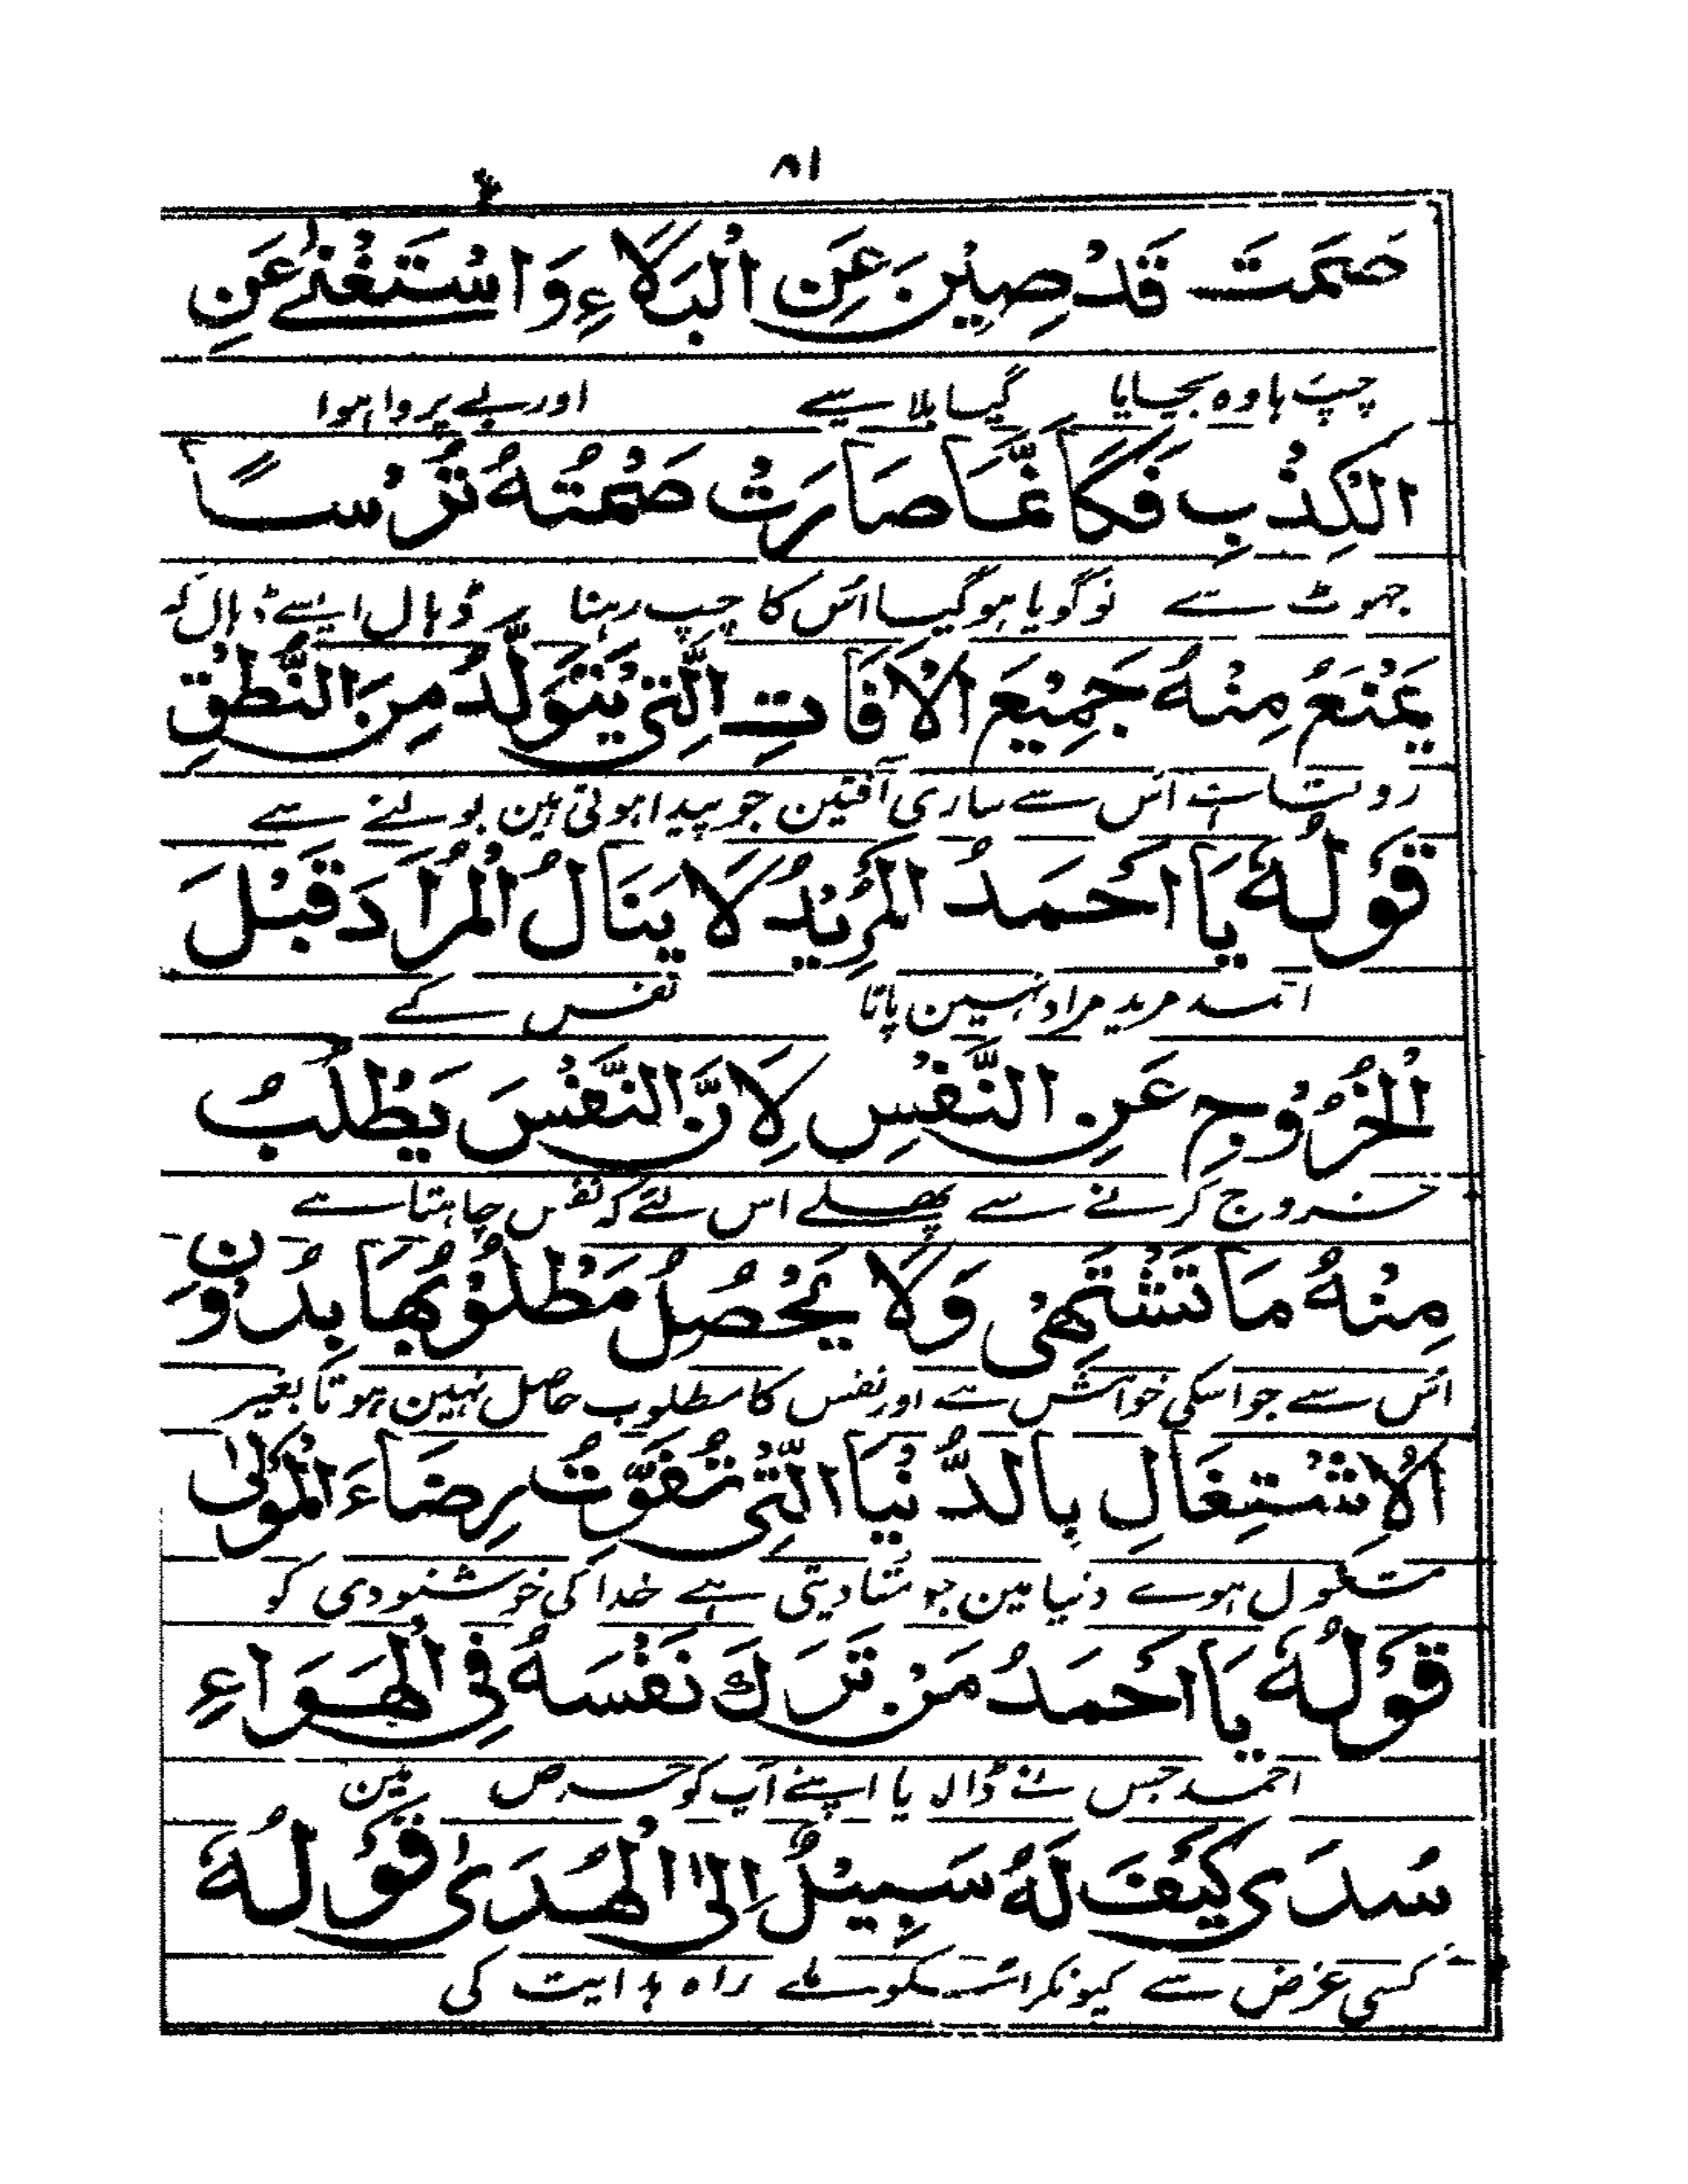 ٨١
صَمَتَ قَدْ صِيْنَ عَنِ الْبَلَاءِ وَاسْتَغْنٰے عَنِ
چپ ہا وہ بچایا گیا بلا سے اور بے پروا ہوا
الْكِذْبِ فَكَاَنَّمَا صَارَتْ صَمْتُهُ تُرْسًا
جہوٹ سے تو گویا ہو گیا اُس کا چپ رہنا ڈہال ایسے ڈہال کہ
يَمْنَعُ مِنْهُ جَمِيْعَ الْاٰفَاتِ الَّتِیْ يَتَوَلَّدُ مِنَ النُّطْقِ
اُس سے ساری آفتین جو پیدا ہوتی ہین بولنے سے
قَوْلُهٗ يَا اَحْمَدُ الْمُرِيْدُ لَا يَنَالُ الْمُرَادَ قَبْلَ
احمد مرید مراد نہین پاتا نفس کے
الْخُرُوْجِ عَنِ النَّفْسِ لِاَنَّ النَّفْسَ يَطْلُبُ
خروج کرنے سے پہلے اس لئے کہ نفس چاہتا ہے
مِنْهُ مَا تَشْتَهِیْ وَلَا يَحْصُلُ مَطْلُوْبُهَا بِدُوْنِ
اُس سے جو اسکی خواہش ہے اور نفس کا مطلوب حاصل نہین ہوتا بغیر
الْاِشْتِغَالِ بِالدُّنْيَا الَّتِیْ تُفَوِّتُ رِضَاءَ الْمَوْلٰى
مشغول ہوے دنیا مین جو مٹا دیتی ہے خدا کی خوشنودی کو
قَوْلُهٗ يَا اَحْمَدُ مَنْ تَرَكَ نَفْسَهُ فِی الْهَوَاءِ
احمد جس نے ڈال یا اپنے آپ کو حرص مین
سُدًى كَيْفَ لَهُ سَبِيْلٌ اِلَى الْهُدٰى قَوْلُهٗ
کسی غرض سے کیونکر اسکو ملے راہ ہدایت کی